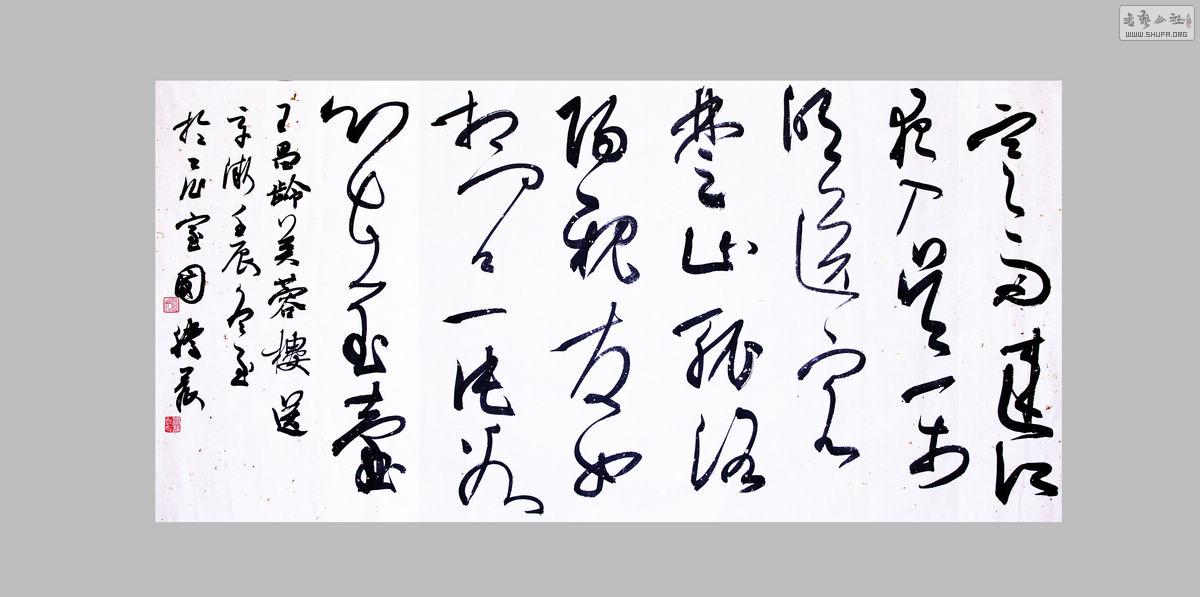 寒雨連江
夜入吳平
明送客
楚山孤洛
陽親友如
相問一片冰
心在玉壺
王昌齡芙蓉樓送
辛漸壬辰冬至
於石室
書藝公社
WWW.SHUFA.ORG